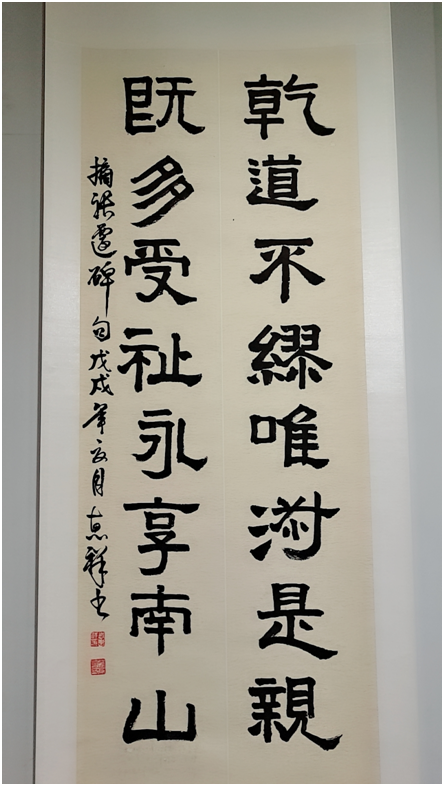 乾道不繆唯淑是親
既多受祉永享南山
摘張遷碑句戊戌年月祥书